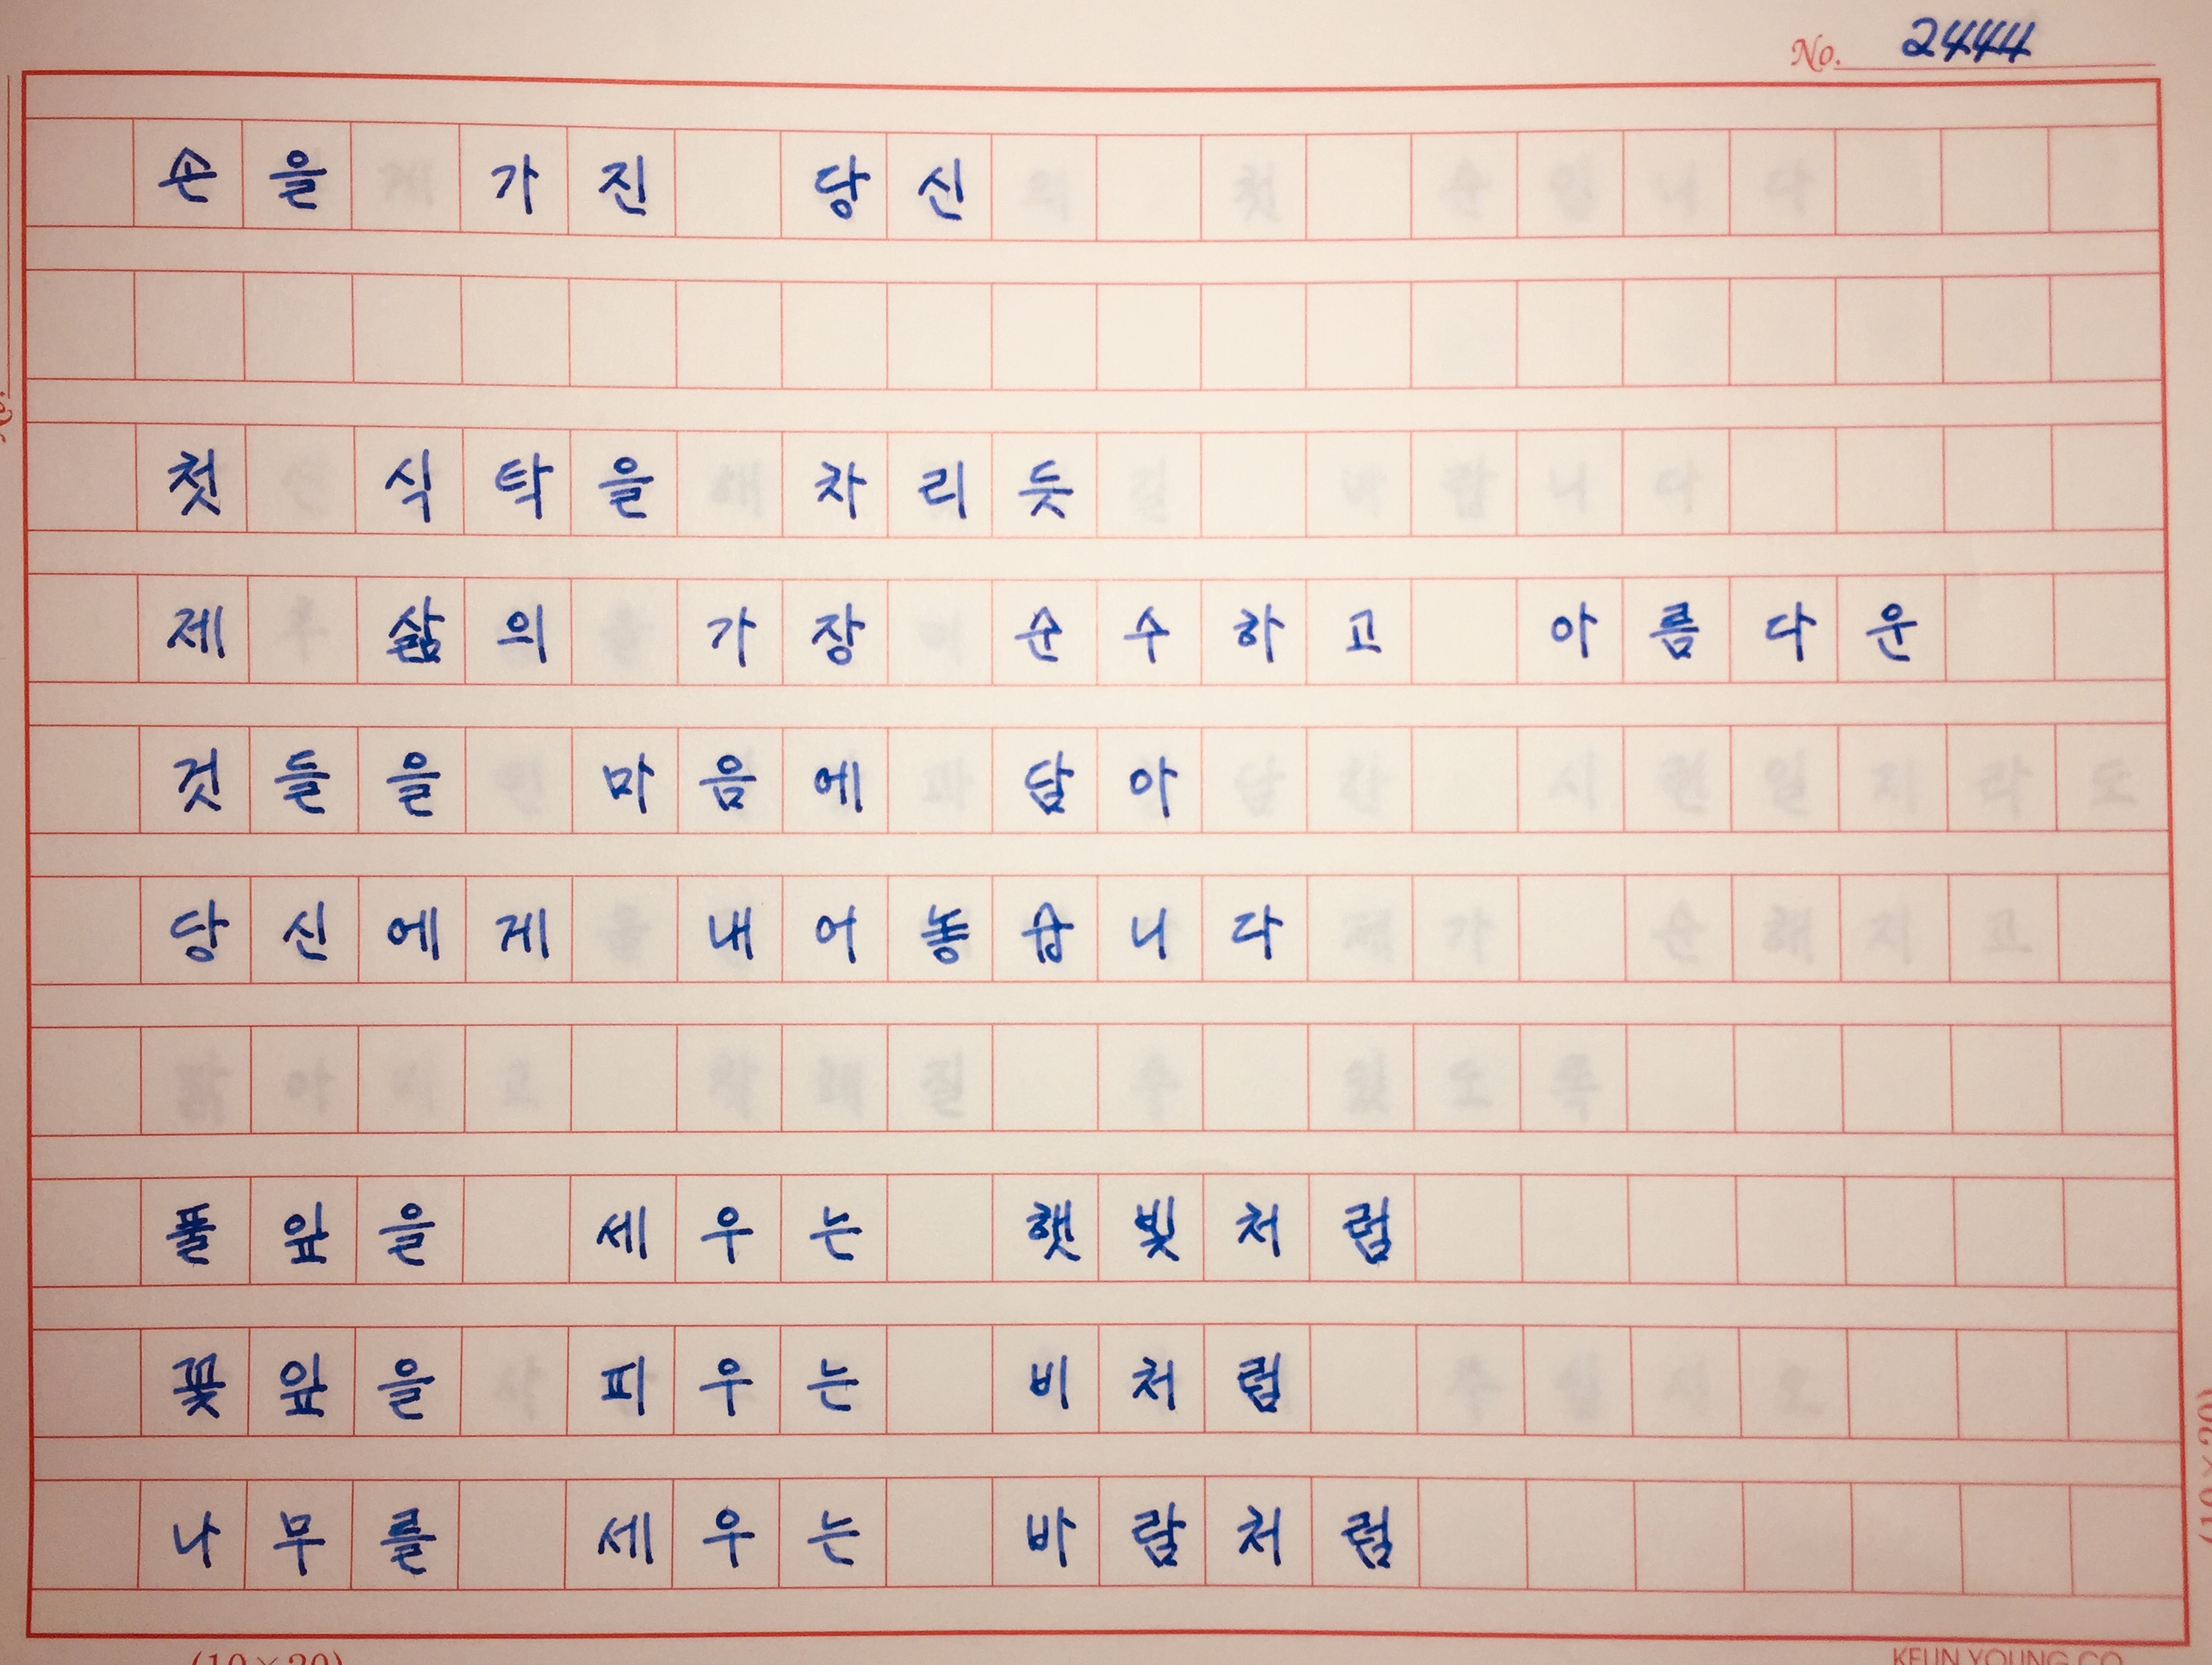 No. 2444
손을 가진 당신
첫 식탁을 차리듯
제 삶의 가장 순수하고 아름다운
것들을 마음에 담아
당신에게 내어놓습니다
풀잎을 세우는 햇빛처럼
꽃잎을 피우는 비처럼
나무를 세우는 바람처럼
(10×20)
KEUN YOUNG CO.
(10×20)